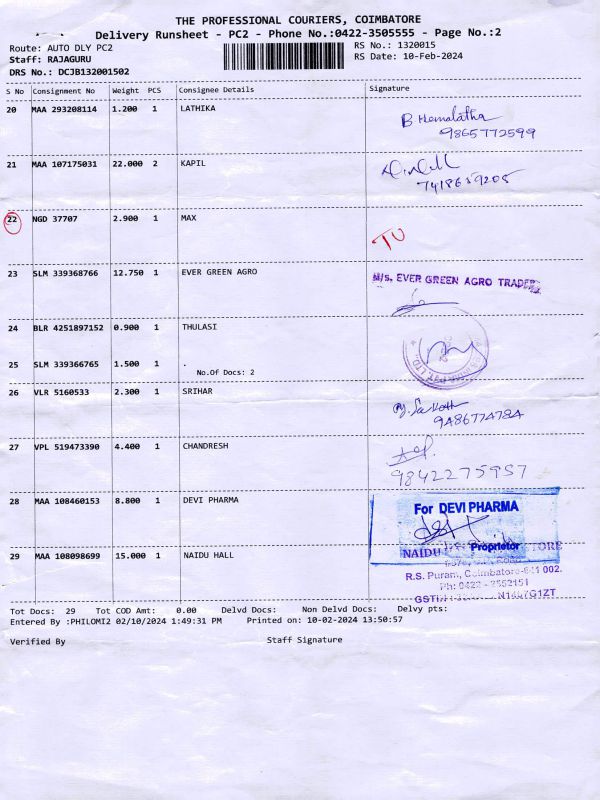 THE PROFESSIONAL COURIERS, COIMBATORE
Delivery Runsheet - PC2 - Phone No.:0422-3505555 - Page No.:2
Route: AUTO DLY PC2
RS No.: 1320015
Staff: RAJAGURU
RS Date: 10-Feb-2024
DRS No.: DCJB132001502
S No Consignment No Weight PCS Consignee Details Signature
20 MAA 293208114 1.200 1 LATHIKA
B Hemalatha
9865772599
21 MAA 107175031 22.000 2 KAPIL
7418659205
22 NGD 37707 2.900 1 MAX
TU
23 SLM 339368766 12.750 1 EVER GREEN AGRO
M/s. EVER GREEN AGRO TRADERS
24 BLR 4251897152 0.900 1 THULASI
25 SLM 339366765 1.500 1 .
No.Of Docs: 2
PVT. LTD.
26 VLR 5160533 2.300 1 SRIHAR
27 VPL 519473390 4.400 1 CHANDRESH
9842275957
28 MAA 108460153 8.800 1 DEVI PHARMA
For DEVI PHARMA
Proprietor
29 MAA 108098699 15.000 1 NAIDU HALL
NAIDU STORE
R.S. Puram, Coimbatore-641 002.
Ph: 0422 - 2552151
Tot Docs: 29 Tot COD Amt: 0.00 Delvd Docs: Non Delvd Docs: Delvy pts:
Entered By :PHILOMI2 02/10/2024 1:49:31 PM Printed on: 10-02-2024 13:50:57
Verified By Staff Signature